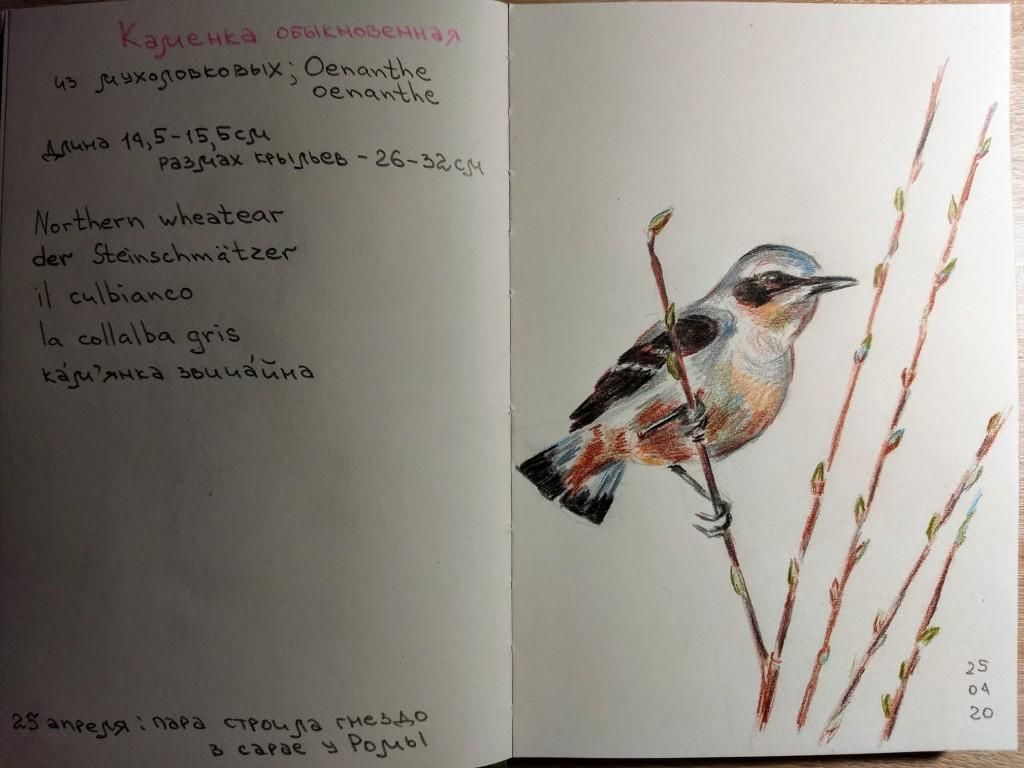 Каменка обыкновенная
из мухоловковых; Oenanthe
oenanthe
Длина 14,5-15,5 см
размах крыльев - 26-32 см
Northern wheatear
der Steinschmätzer
il culbianco
la collalba gris
ка́м'янка звича́йна
25 апреля: пара строила гнездо
в сарае у Ромы
25
04
20